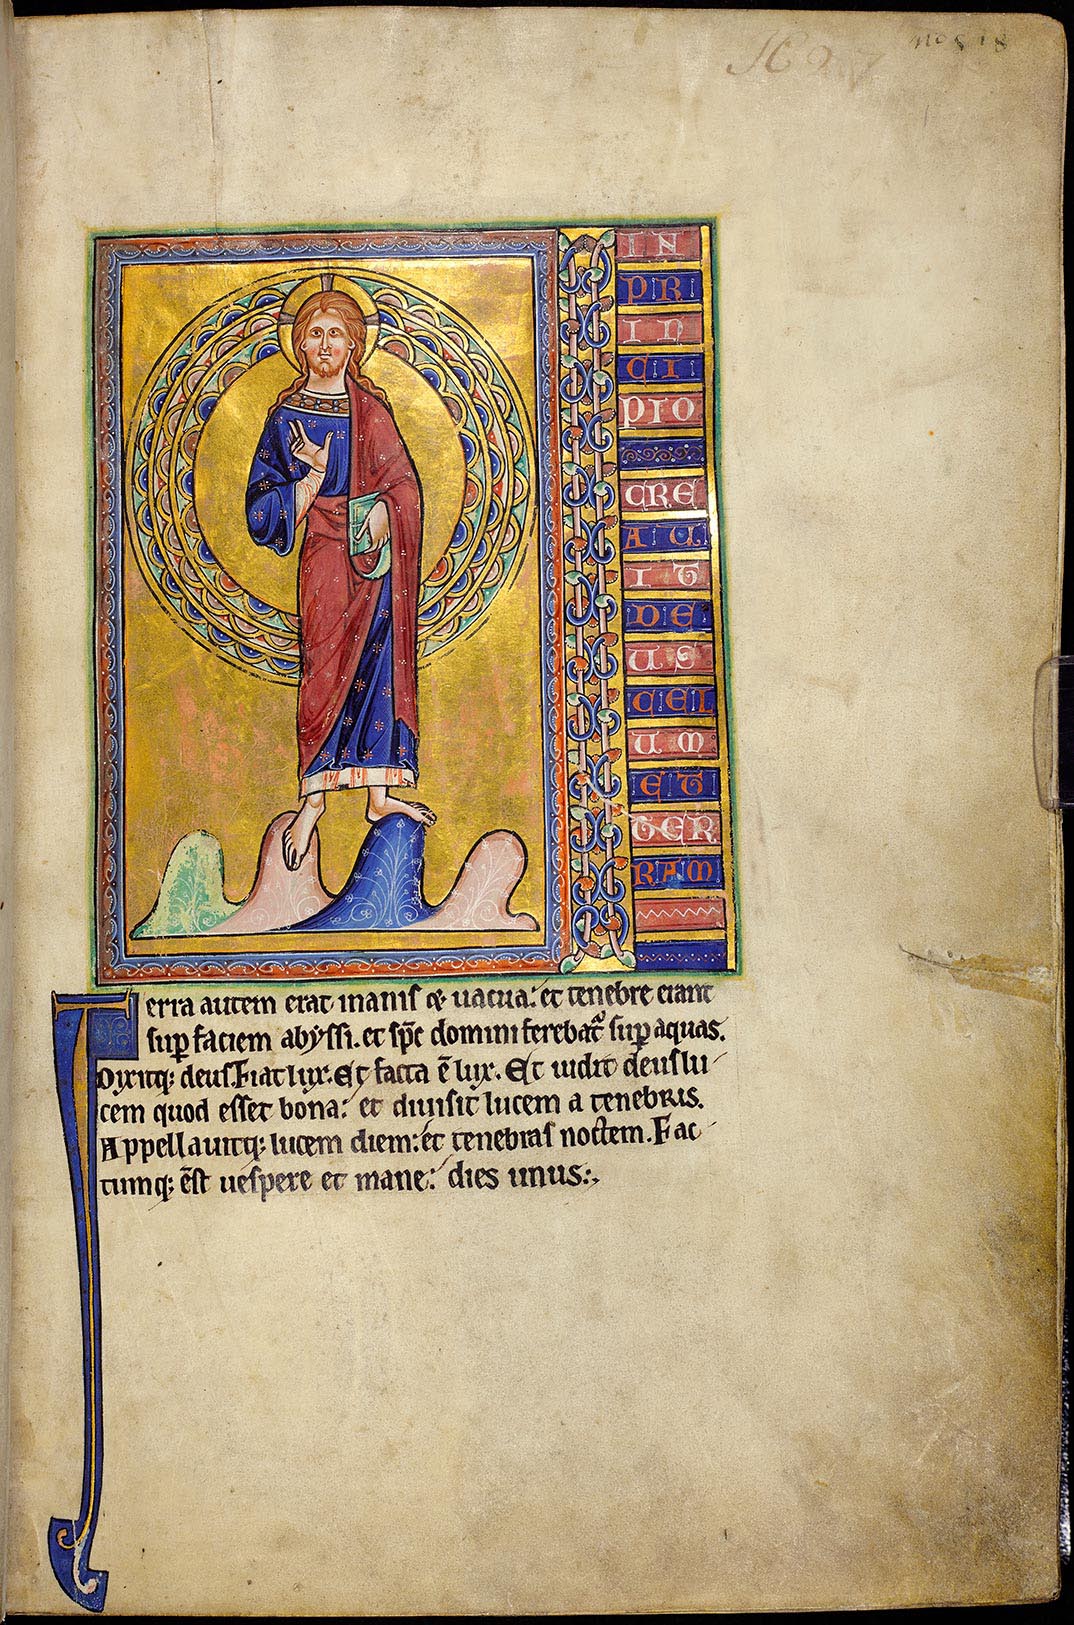 no 5 18
IN
PRI
IN
CI
PIO
CRE
AU
IT
DE
US
CEL
UM
ET
TER
RAM
Terra autem erat inanis & uacua: et tenebre erant
sup faciem abyssi. et sp̄c domini ferebat᷑ sup aquas.
Dixitq; deus. Fiat lux. Et facta ē lux. Et uidit deus lu
cem quod esset bona: et diuisit lucem a tenebris.
Appellauitq; lucem diem: et tenebras noctem. Fac
tumq; ēst uespere et mane: dies unus:,